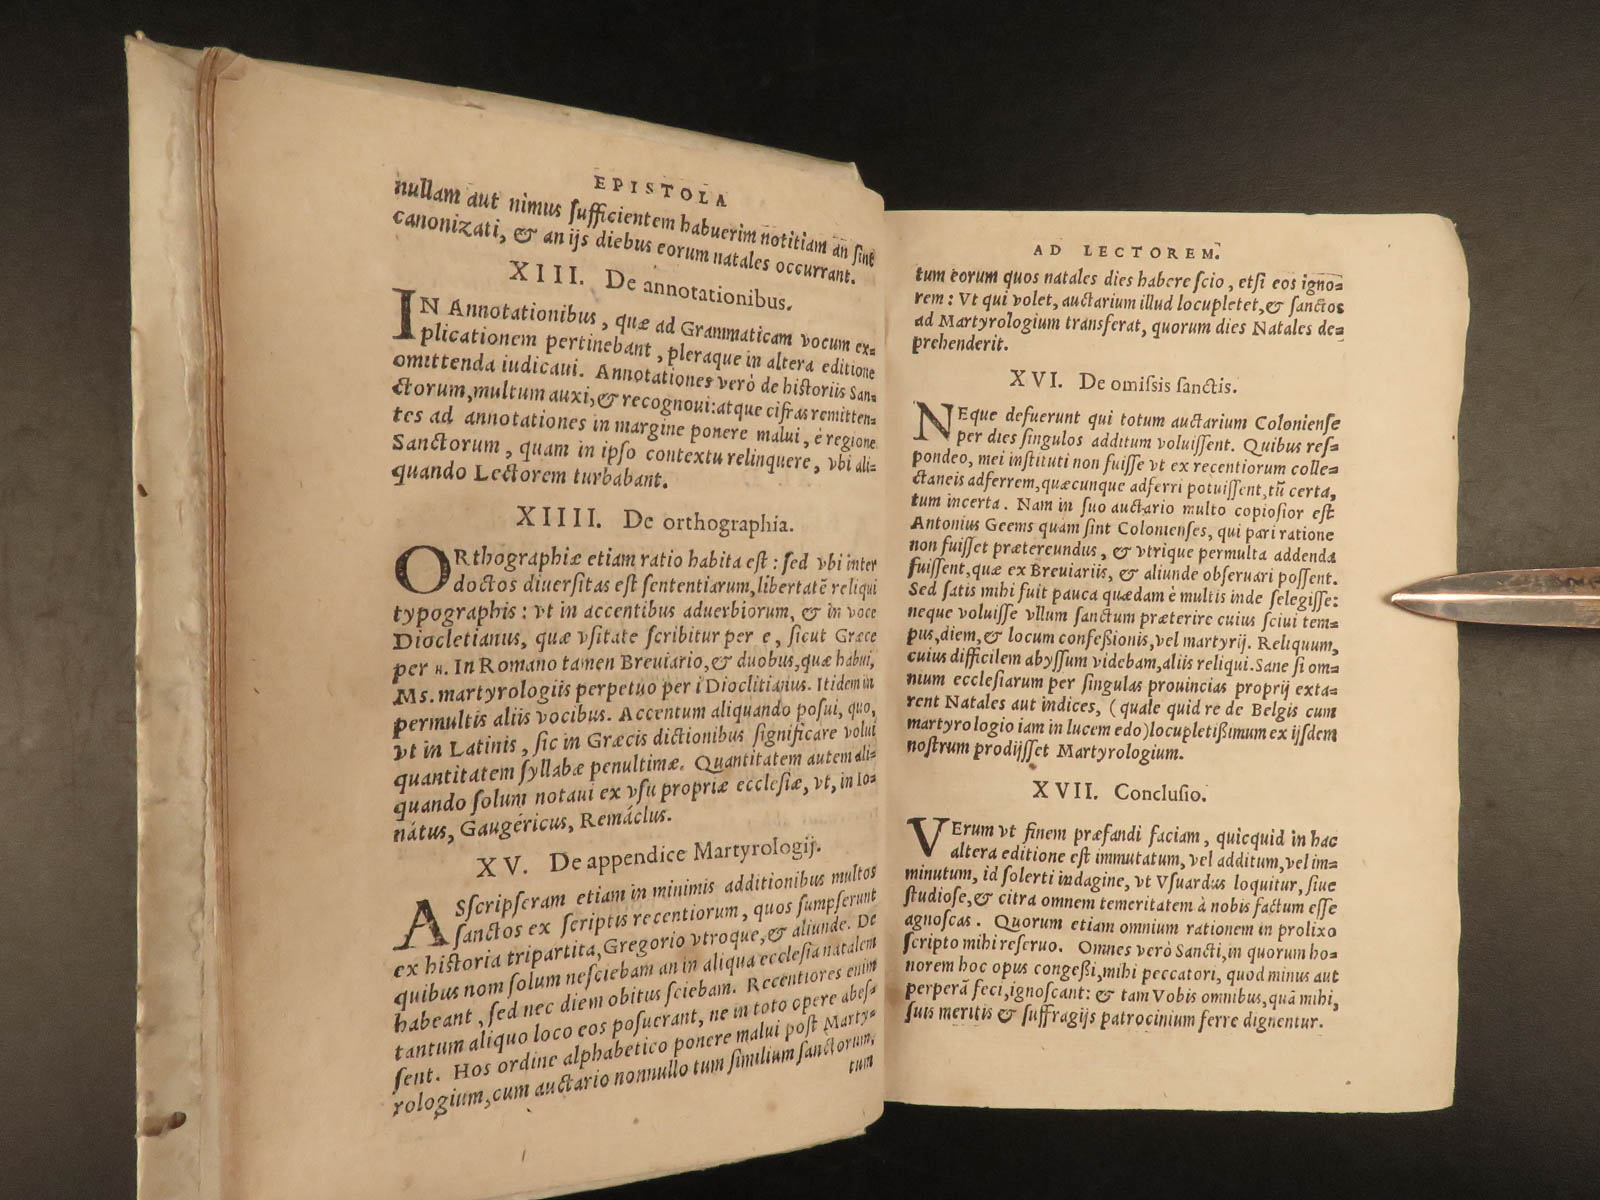 EPISTOLA
nullam aut nimus sufficientem habuerim notitiam an sint
canonizati, & an ijs diebus eorum natales occurrant.
XIII. De annotationibus.
IN Annotationibus, quæ ad Grammaticam vocum ex=
plicationem pertinebant, pleraque in altera editione
omittenda iudicaui. Annotationes verò de historiis San=
ctorum, multum auxi, & recognoui: atque cifras remitten=
tes ad annotationes in margine ponere malui, è regione
Sanctorum, quam in ipso contextu relinquere, vbi ali=
quando Lectorem turbabant.
XIIII. De orthographia.
ORthographiæ etiam ratio habita est: sed vbi inter
doctos diuersitas est sententiarum, libertatē reliqui
typographis: vt in accentibus aduerbiorum, & in voce
Diocletianus, quæ vsitate scribitur per e, sicut Græce
per н. In Romano tamen Breuiario, & duobus, quæ habui,
Ms. martyrologiis perpetuo per i Dioclitianus. Itidem in
permultis aliis vocibus. Accentum aliquando posui, quo,
vt in Latinis, sic in Græcis dictionibus significare volui
quantitatem syllabæ penultimæ. Quantitatem autem ali=
quando solum notaui ex vsu propriæ ecclesiæ, vt, in Io=
nátus, Gaugéricus, Remáclus.
XV. De appendice Martyrologij.
ASscripseram etiam in minimis additionibus multos
sanctos ex scriptis recentiorum, quos sumpserunt
ex historia tripartita, Gregorio vtroque, & aliunde. De
quibus nom solum nesciebam an in aliqua ecclesia natalem
habeant, sed nec diem obitus sciebam. Recentiores enim
tantum aliquo loco eos posuerant, ne in toto opere abes=
sent. Hos ordine alphabetico ponere malui post Marty=
rologium, cum auctario nonnullo tum similium sanctorum,
tum
AD LECTOREM.
tum eorum quos natales dies habere scio, etsi eos igno=
rem: Vt qui volet, auctarium illud locupletet, & sanctos
ad Martyrologium transferat, quorum dies Natales de=
prehenderit.
XVI. De omissis sanctis.
NEque defuerunt qui totum auctarium Coloniense
per dies singulos additum voluissent. Quibus res=
pondeo, mei instituti non fuisse vt ex recentiorum colle=
ctaneis adferrem, quæcunque adferri potuissent, tū certa,
tum incerta. Nam in suo auctario multo copiosior est
Antonius Geems quam sint Colonienses, qui pari ratione
non fuisset prætereundus, & vtrique permulta addenda
fuissent, quæ ex Breuiariis, & aliunde obseruari possent.
Sed satis mihi fuit pauca quædam è multis inde selegisse:
neque voluisse vllum sanctum præterire cuius sciui tem=
pus, diem, & locum confeßionis, vel martyrij. Reliquum,
cuius difficilem abyssum videbam, aliis reliqui. Sane si om=
nium ecclesiarum per singulas prouincias proprij exta=
rent Natales aut indices, (quale quid re de Belgis cum
martyrologio iam in lucem edo) locupletißimum ex ijsdem
nostrum prodijsset Martyrologium.
XVII. Conclusio.
VErum vt finem præfandi faciam, quicquid in hac
altera editione est immutatum, vel additum, vel im=
minutum, id solerti indagine, vt Vsuardus loquitur, siue
studiose, & citra omnem temeritatem à nobis factum esse
agnoscas. Quorum etiam omnium rationem in prolixo
scripto mihi reseruo. Omnes verò Sancti, in quorum ho=
norem hoc opus congeßi, mihi peccatori, quod minus aut
perperā feci, ignoscant: & tam Vobis omnibus, quā mihi,
suis meritis & suffragijs patrocinium ferre dignentur.